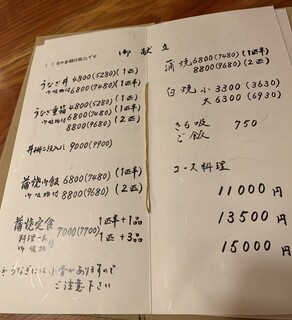 ( )内の金額は税込です
うなぎ丼 4800(5280)(1匹)
吸物付 6800(7480)(1匹半)
うなぎ重箱 4800(5280)(1匹)
吸物付 6800(7480)(1匹半)
8800(9680)(2匹)
丼御二段入り 9000(9900)
蒲焼御飯 6800(7480)(1匹半)
8800(9680)(2匹)
蒲焼定食 1匹半+1品
料理一品 7000(7700)
吸物 1匹+3品
うなぎには小骨がありますので
ご注意下さい
御献立
蒲焼 6800(7480)(1匹半)
8800(9680)(2匹)
白焼 小 3300(3630)
大 6300(6930)
きも吸 750
ご飯
コース料理
11000円
13500円
15000円